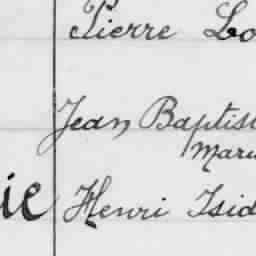 Pierre Lo
Jean Baptis
Mari
ie Henri Isid